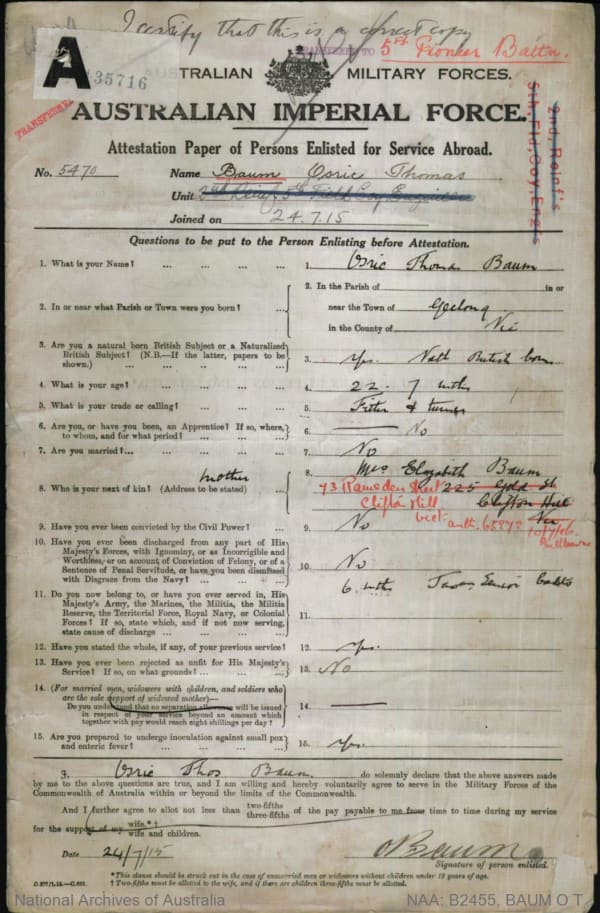 I certify that this is a correct copy
TRANSFERRED TO 5th Pioneer Battn.
A 35716
AUSTRALIAN MILITARY FORCES.
TRANSFERRED
AUSTRALIAN IMPERIAL FORCE.
2nd. Reinf's
5th. Fld Coy Eng's
Attestation Paper of Persons Enlisted for Service Abroad.
No. 5470 Name Baum Osric Thomas
Unit 5th Field Coy Engineers
Joined on 24.7.15
Questions to be put to the Person Enlisting before Attestation.
1. What is your Name? ... ... ... ... 1. Osric Thomas Baum
2. In or near what Parish or Town were you born? ... 2. In the Parish of in or
near the Town of Geelong
in the County of Vic
3. Are you a natural born British Subject or a Naturalized
British Subject? (N.B.—If the latter, papers to be
shown.) ... ... ... ... 3. Yes. Nat British born
4. What is your age? ... ... ... ... 4. 22 - 7 mths
5. What is your trade or calling? ... ... ... 5. Fitter & turner
6. Are you, or have you been, an Apprentice? If so, where,
to whom, and for what period? ... ... ... 6. No
7. Are you married? ... ... ... ... 7. No
8. Who is your next of kin? (Address to be stated) ... mother 8. Mrs Elizabeth Baum
73 Ramsden Street 225 Gold St
Clifton Hill Clifton Hill
Vict. Vic
auth. 65892
Melbourne
9. Have you ever been convicted by the Civil Power? ... 9. No
10. Have you ever been discharged from any part of His
Majesty's Forces, with Ignominy, or as Incorrigible and
Worthless, or on account of Conviction of Felony, or of a
Sentence of Penal Servitude, or have you been dismissed
with Disgrace from the Navy? ... ... ... 10. No
11. Do you now belong to, or have you ever served in, His
Majesty's Army, the Marines, the Militia, the Militia
Reserve, the Territorial Force, Royal Navy, or Colonial
Forces? If so, state which, and if not now serving,
state cause of discharge ... ... ... ... 11. 6 mths Senior Cadets
12. Have you stated the whole, if any, of your previous service? 12. Yes.
13. Have you ever been rejected as unfit for His Majesty's
Service? If so, on what grounds? ... ... ... 13. No
14. (For married men, widowers with children, and soldiers who
are the sole support of widowed mother)—
Do you understand that no separation allowance will be issued
in respect of your service beyond an amount which
together with pay would reach eight shillings per day? 14.
15. Are you prepared to undergo inoculation against small pox
and enteric fever? ... ... ... ... 15. Yes.
I, Osric Thos Baum do solemnly declare that the above answers made
by me to the above questions are true, and I am willing and hereby voluntarily agree to serve in the Military Forces of the
Commonwealth of Australia within or beyond the limits of the Commonwealth.
And I further agree to allot not less than two-fifths three-fifths of the pay payable to me from time to time during my service
for the support of my wife.*† wife and children.
Date 24/7/15 O Baum
Signature of person enlisted.
*This clause should be struck out in the case of unmarried men or widowers without children under 18 years of age.
† Two-fifths must be allotted to the wife, and if there are children three-fifths must be allotted.
National Archives of Australia NAA: B2455, BAUM O T